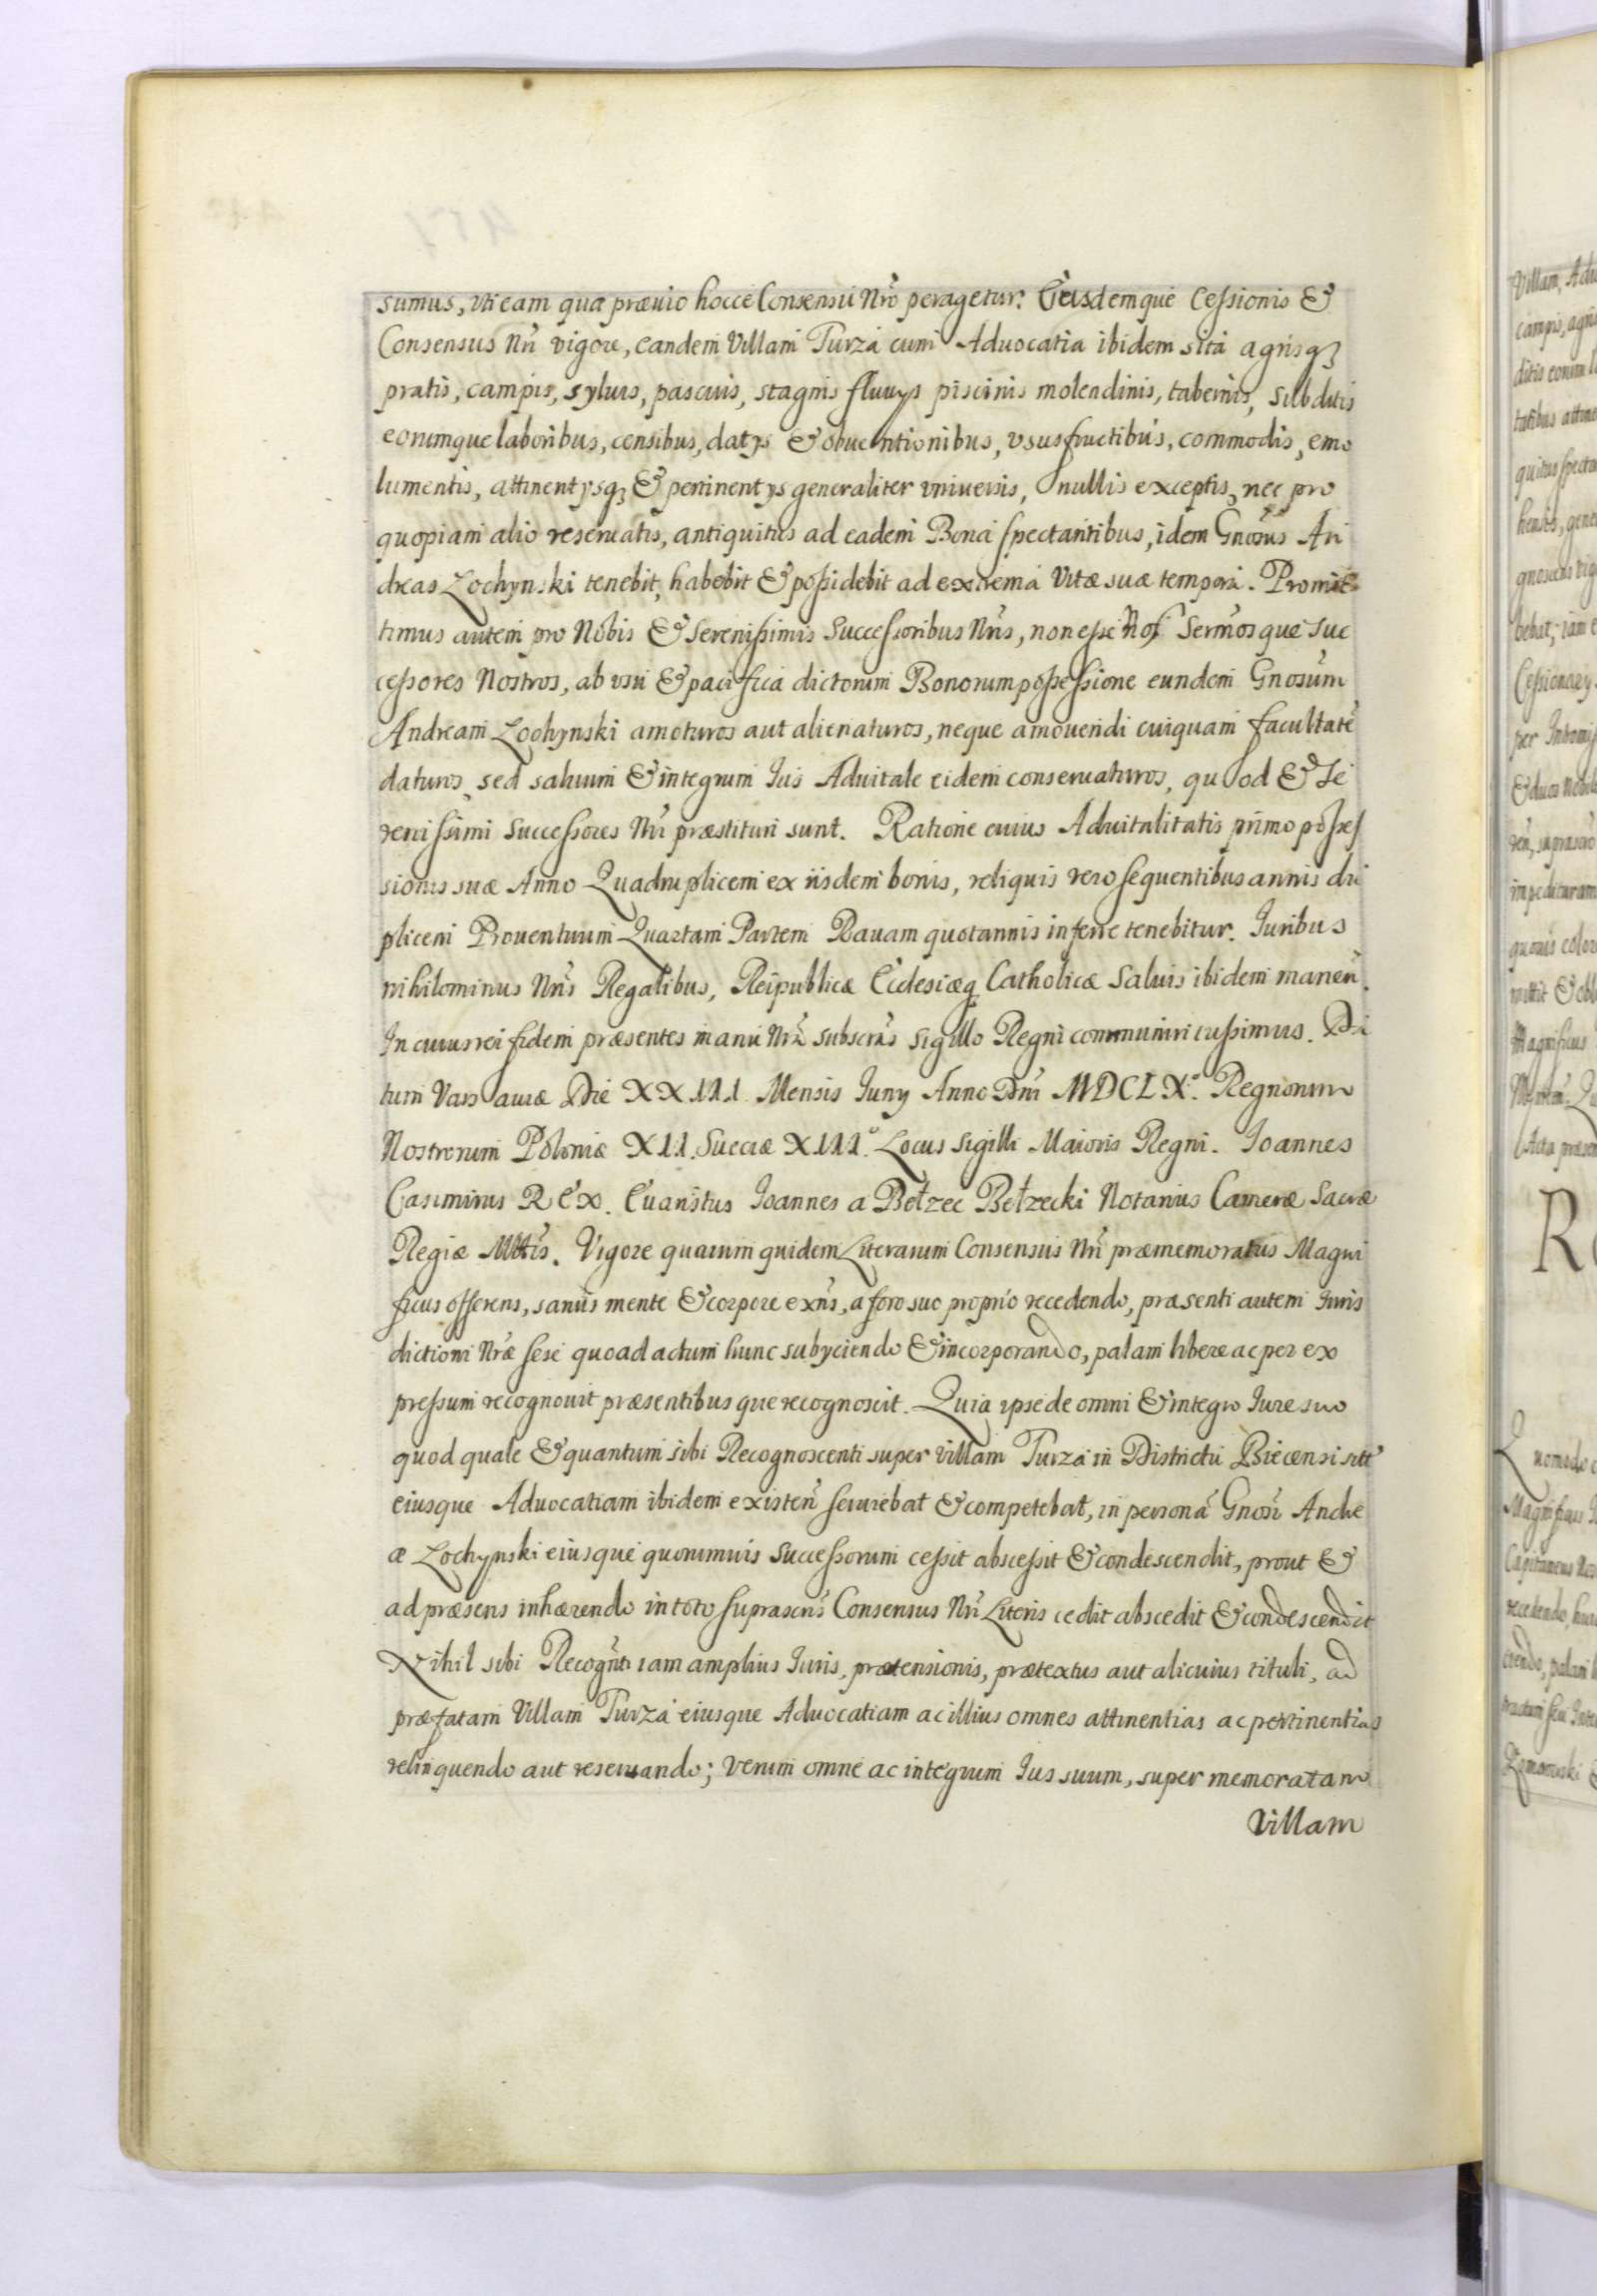 sumus, Vti eam qua præuio hocce Consensu Nr̃o peragetur. Eiusdemque Cessionis &
Consensus Nr̃i vigore, eandem Villam Turza cum Aduocatia ibidem sita agrisq₃
pratis, campis, syluis, pascuis, stagnis fluuijs piscinis molendinis, tabernis, subditis
eorumque laboribus, censibus, datijs & obuentionibus, vsusfructibus, commodis, emo
lumentis, attinentijsq₃ & pertinentijs generaliter vniuersis, nullis exceptis, nec pro
quopiam alio reseruatis, antiquitus ad eadem Bona spectantibus, idem Gnosus An
dreas Zochynski tenebit, habebit & possidebit ad extrema Vitæ suæ tempora. Promit
timus autem pro Nobis & Serenissimis Successoribus Nr̃is, non esse Nos Sermosque Suc
cessores Nostros, ab vsu & pacifica dictorum Bonorum possessione eundem Gnosum
Andream Zochynski amoturos aut alienaturos, neque amouendi cuiquam facultatẽ
daturos, sed saluum & integrum Ius Aduitale eidem conseruaturos, quod & Se
renissimi Successores Nr̃i præstituri sunt. Ratione cuius Aduitalitatis primo posses
sionis suæ Anno Quadruplicem ex iisdem bonis, reliquis vero sequentibus annis du
plicem Prouentuum Quartam Partem Rauam quotannis inferre tenebitur. Iuribus
nihilominus Nr̃is Regalibus, Reipublicæ Ecclesiæq Catholicæ saluis ibidem maneñ.
In cuius rei fidem præsentes manu Nr̃a subscr̃as sigillo Regni communiri iussimus. Da
tum Varsauiæ Die XXIII Mensis Iunij Anno Dñi MDCLX.° Regnorum
Nostrorum Poloniæ XII. Sueciæ XIII.° Locus Sigilli Maioris Regni. Ioannes
Casimirus REX. Euaristus Ioannes a Bełzec Bełzecki Notarius Cameræ Sacræ
Regiæ Mttis. Vigore quarum quidem Literarum Consensus Nr̃i præmemoratus Magni
ficus offerens, sanus mente & corpore exñs, a foro suo proprio recedendo, præsenti autem Iuris
dictioni Nr̃æ sese quoad actum hunc subyciendo & incorporando, palam libere ac per ex
pressum recognouit præsentibusque recognoscit. Quia ipse de omni & integro Iure suo
quod quale & quantum sibi Recognoscenti super Villam Turza in Districtu Biecensi sitã
eiusque Aduocatiam ibidem existeñ seruiebat & competebat, in personã Gnosi Andre
æ Zochynski eiusque quorumuis Successorum cessit abscessit & condescendit, prout &
ad præsens inhærendo in toto suprascr̃is Consensus Nr̃i Literis cedit abscedit & condescendit
Nihil sibi Recogñti iam amplius Iuris, prætensionis, prætextus aut alicuius tituli, ad
præfatam Villam Turza eiusque Aduocatiam ac illius omnes attinentias ac pertinentias
relinquendo aut reseruando; Verum omne ac integrum Ius suum, super memoratam
Villam